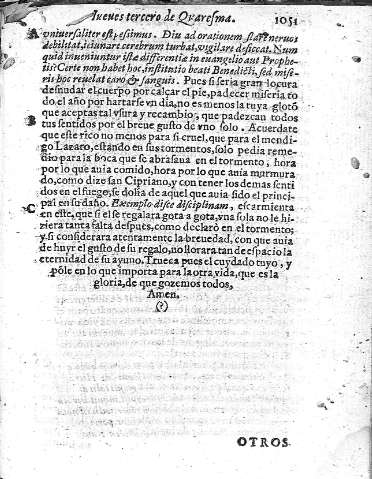 Iueues tercero de Quaresma. 1051
A vniuersaliter est pessimus. Diu ad orationem stare neruos
debilitat, ieiunare cerebrum turbat, vigilare desiccat. Num
quid inueniuntur istæ differentiæ in euangelio aut Prophe-
tis? Certe non habet hoc, institutio beati Benedicti, sed mise-
ris hoc reuelat caro & sanguis. Pues si seria gran locura
desnudar el cuerpo por calçar el pie, padecer miseria to
do el año por hartarse vn dia, no es menos la tuya glotō
que aceptas tal vsura y recambio, que padezcan todos
B
tus sentidos por el breue gusto de vno solo. Acuerdate
que este rico no menos para si cruel, que para el mendi-
go Lazaro, estando en sus tormentos, solo pedia reme-
dio para la boca que se abrasaua en el tormento, hora
por lo que auia comido, hora por lo que auia murmura
do, como dize san Cipriano, y con tener los demas senti
dos en el fuego, se dolia de aquel que auia sido el princi-
pal en su daño. Exemplo disce disciplinam, escarmienta
C
en este, que si el se regalara gota a gota, vna sola no le hi-
ziera tanta falta despues, como declarò en el tormento:
y si considerara atentamente la breuedad, con que auia
de huyr el gusto de su regalo, no llorara tan de espacio la
eternidad de su ayuno. Trueca pues el cuydado tuyo, y
põle en lo que importa para la otra vida, que es la
gloria, de que gozemos todos,
Amen.
(?)
OTROS